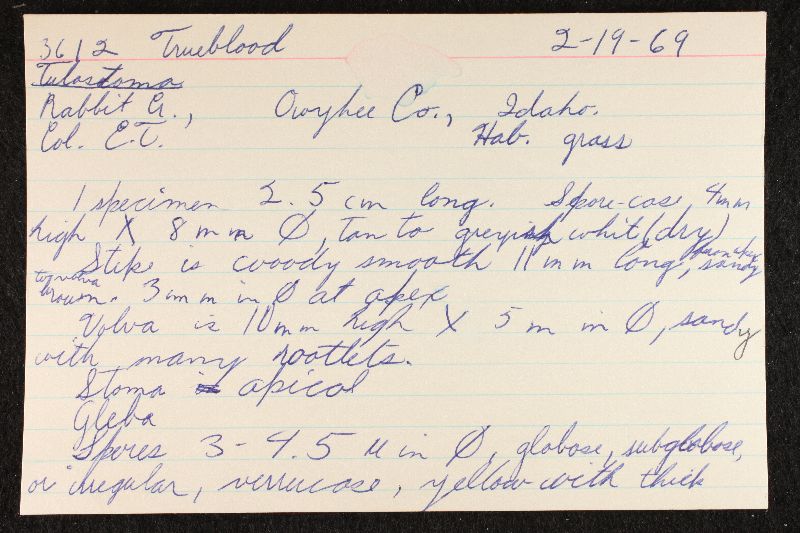 3612 Trueblood 2-19-69
Tulostoma
Rabbit Cr., Owyhee Co., Idaho.
Col. E.T. Hab. grass
1 specimen 2.5 cm long. Spore-case, 4mm
high X 8 mm Ø, tan to greyish whit (dry)
Stipe is woody smooth 11 mm long, from apex
to volva sandy
brown. 3 mm in Ø at apex
Volva is 10 mm high X 5 m in Ø, sandy
with many rootlets.
Stoma apical
Gleba
Spores 3-4.5 µ in Ø, globose, subglobose,
or irregular, verrucose, yellow with thick